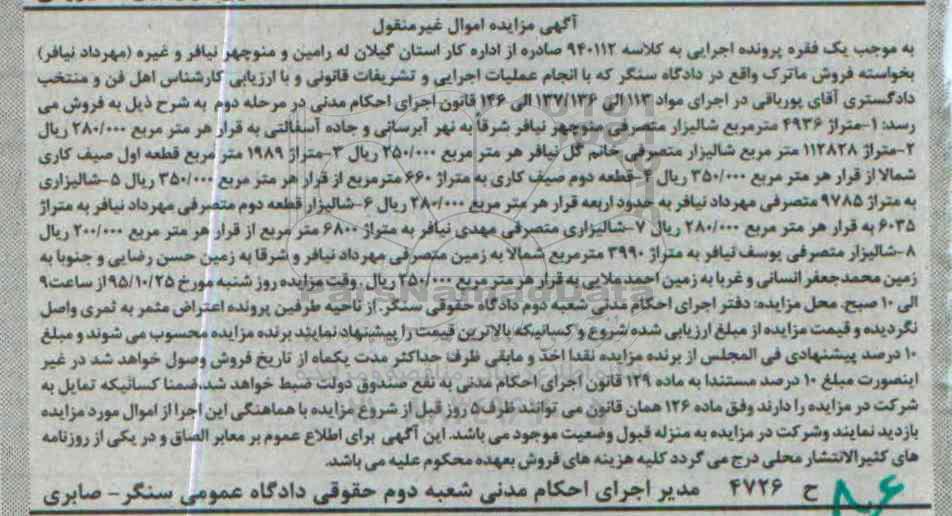 آگهی مزایده اموال غیرمنقول
به موجب یک فقره پرونده اجرایی به کلاسه ۹۴۰۱۱۲ صادره از اداره کار استان گیلان له رامین و منوچهر نیافر و غیره (مهرداد نیافر)
بخواسته فروش ماترک واقع در دادگاه سنگر که با انجام عملیات اجرایی و تشریفات قانونی و با ارزیابی کارشناس اهل فن و منتخب
دادگستری آقای پورباقی در اجرای مواد ۱۱۳ الی ۱۳۷/۱۳۶ الی ۱۴۶ قانون اجرای احکام مدنی در مرحله دوم به شرح ذیل به فروش می
رسد: ۱-متراژ ۴۹۳۶ مترمربع شالیزار متصرفی منوچهر نیافر شرقاً به نهر آبرسانی و جاده آسفالتی به قرار هر متر مربع ۲۸۰/۰۰۰ ریال
۲-متراژ ۱۱۲۸۲۸ متر مربع شالیزار متصرفی خانم گل نیافر هر متر مربع ۲۵۰/۰۰۰ ریال ۳-متراژ ۱۹۸۹ متر مربع قطعه اول صیف کاری
شمالا از قرار هر متر مربع ۳۵۰/۰۰۰ ریال ۴-قطعه دوم صیف کاری به متراژ ۶۶۰ مترمربع از قرار هر متر مربع ۳۵۰/۰۰۰ ریال ۵-شالیزاری
به متراژ ۹۷۸۵ متصرفی مهرداد نیافر به حدود اربعه قرار هر متر مربع ۲۸۰/۰۰۰ ریال ۶-شالیزار قطعه دوم متصرفی مهرداد نیافر به متراژ
۶۰۳۵ به قرار هر متر مربع ۲۸۰/۰۰۰ ریال ۷-شالیزاری متصرفی مهدی نیافر به متراژ ۶۸۰۰ متر مربع از قرار هر متر مربع ۲۰۰/۰۰۰ ریال
۸-شالیزار متصرفی یوسف نیافر به متراژ ۳۹۹۰ مترمربع شمالا به زمین متصرفی مهرداد نیافر و شرقا به زمین حسن رضایی و جنوبا به
زمین محمدجعفر انسانی و غربا به زمین احمد ملایی به قرار هر متر مربع ۲۵۰/۰۰۰ ریال. وقت مزایده روز شنبه مورخ ۹۵/۱۰/۲۵ از ساعت ۹
الی ۱۰ صبح. محل مزایده: دفتر اجرای احکام مدنی شعبه دوم دادگاه حقوقی سنگر. از ناحیه طرفین پرونده اعتراض مثمر به ثمری واصل
نگردیده و قیمت مزایده از مبلغ ارزیابی شده شروع و کسانیکه بالاترین قیمت را پیشنهاد نمایند برنده مزایده محسوب می شوند و مبلغ
۱۰ درصد پیشنهادی فی المجلس از برنده مزایده نقدا اخذ و مابقی ظرف حداکثر مدت یکماه از تاریخ فروش وصول خواهد شد در غیر
اینصورت مبلغ ۱۰ درصد مستندا به ماده ۱۲۹ قانون اجرای احکام مدنی به نفع صندوق دولت ضبط خواهد شد.ضمنا کسانیکه تمایل به
شرکت در مزایده را دارند وفق ماده ۱۲۶ همان قانون می توانند ظرف ۵ روز قبل از شروع مزایده با هماهنگی این اجرا از اموال مورد مزایده
بازدید نمایند وشرکت در مزایده به منزله قبول وضعیت موجود می باشد. این آگهی برای اطلاع عموم بر معابر الصاق و در یکی از روزنامه
های کثیرالانتشار محلی درج می گردد کلیه هزینه های فروش بعهده محکوم علیه می باشد.
ح ۴۷۲۶ مدیر اجرای احکام مدنی شعبه دوم حقوقی دادگاه عمومی سنگر- صابری